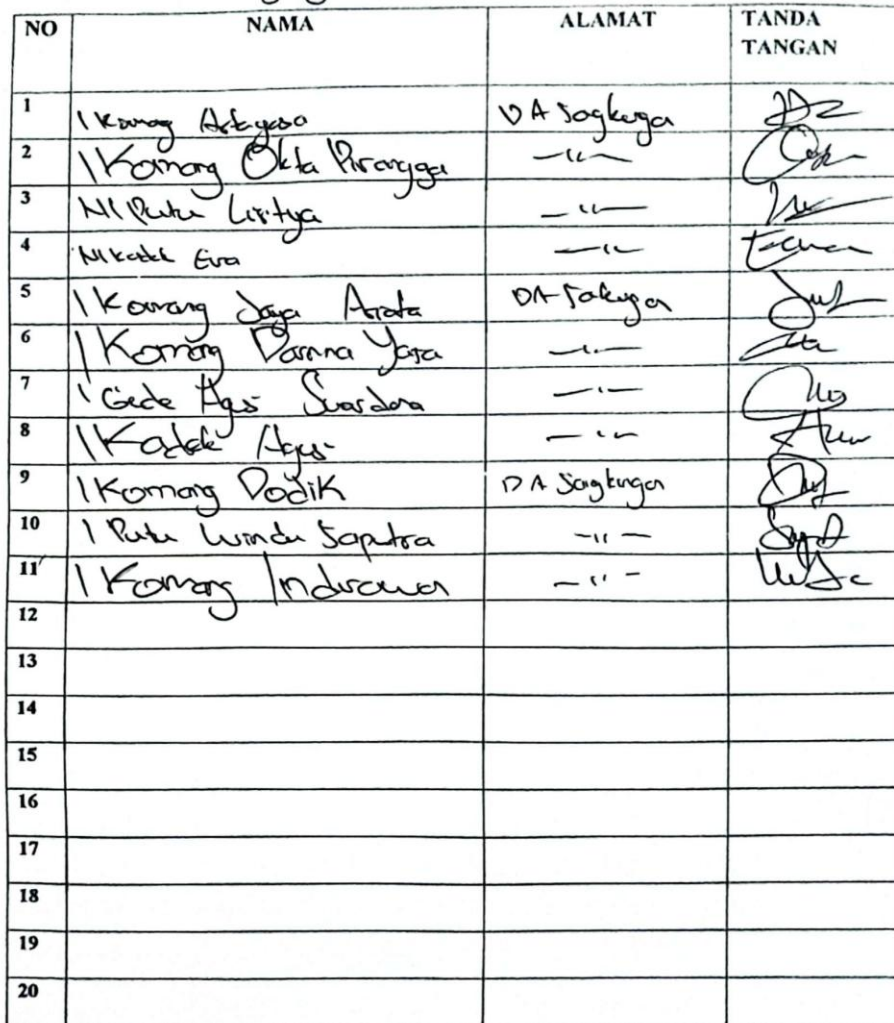 NO NAMA ALAMAT TANDA TANGAN
1 I Komang Artayasa DA Sangkungan
2 I Komang Okta Pirangga —"—
3 NI Putu Liritya —"—
4 NI Kadek Eva —"—
5 I Komang Jaya Arata DA
6 I Komang Darma Yasa —"—
7 I Gede Agus Suardana —"—
8 I Kadek Agus —"—
9 I Komang Dodik DA Sangkungan
10 I Putu Windu Saputra —"—
11 I Komang Indrawan —"—
12
13
14
15
16
17
18
19
20